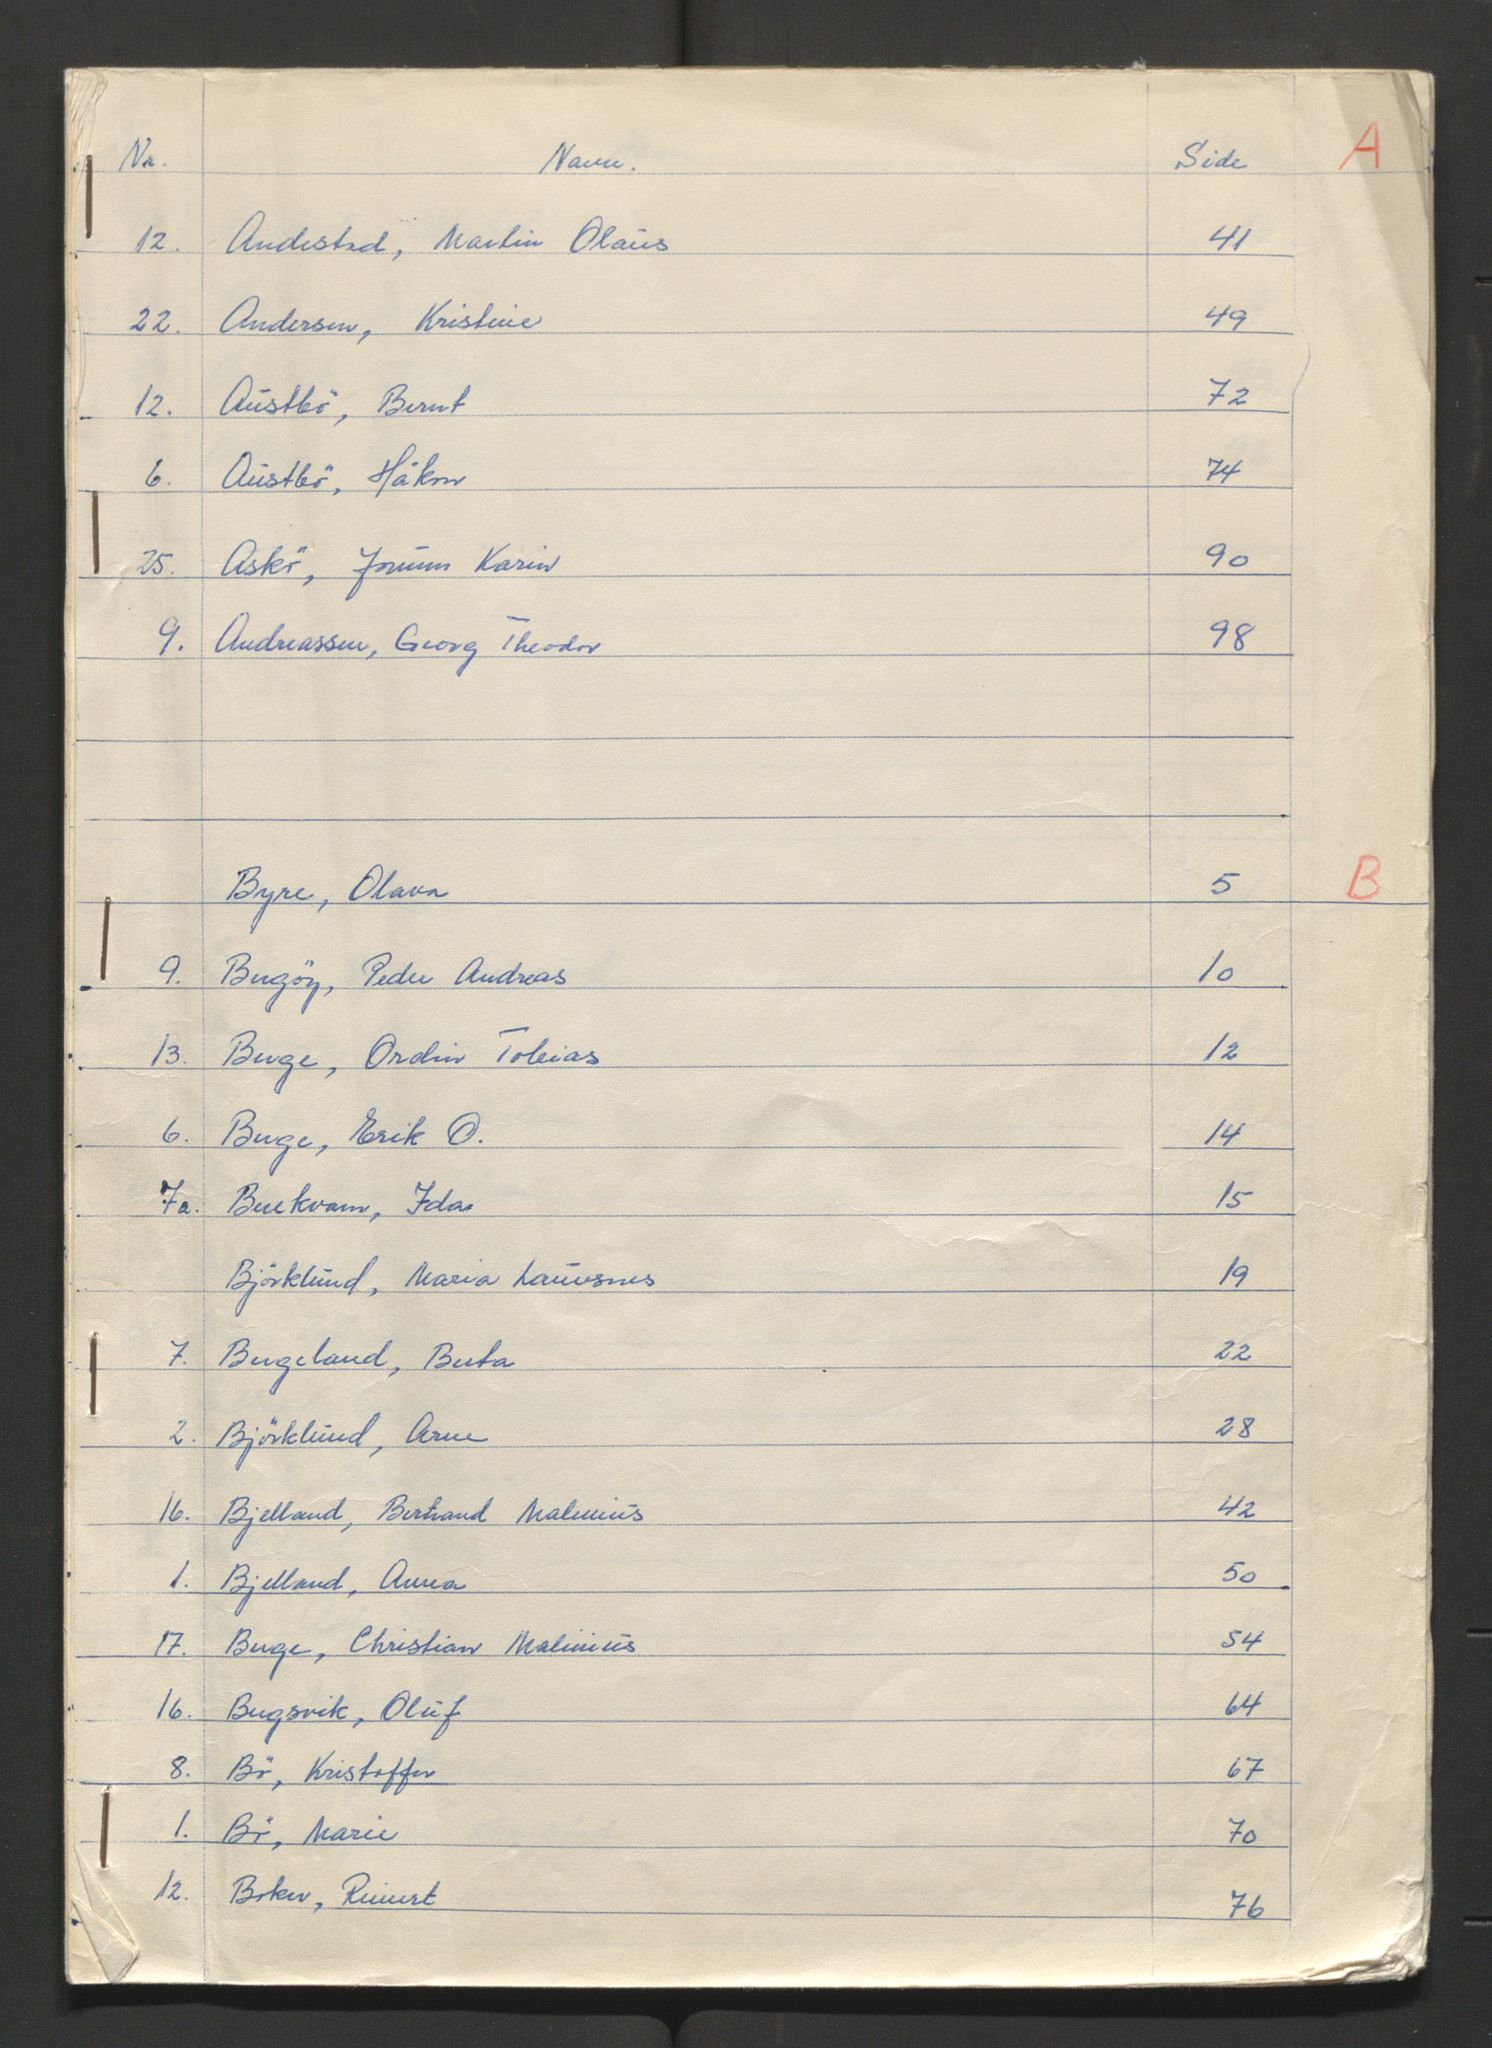 Nr. Navn. Side A
12. Andestad, Martin Olaus 41
22. Andersen, Kristine 49
12. Austbö, Bernt 72
6. Austbö, Håkon 74
25. Askö, Jorunn Karin 90
9. Andreassen, Georg Theodor 98
Byre, Olava 5 B
9. Bergöy, Peder Andreas 10
13. Berge, Ordin Tobias 12
6. Berge, Erik O. 14
7a. Berekvam, Ida 15
Björklund, Maria Lauvsnes 19
7. Bergeland, Berta 22
2. Björklund, Arne 28
16. Bjelland, Bertrand Malenius 42
1. Bjelland, Anna 50
17. Berge, Christian Malinius 54
16. Bergsvik, Oluf 64
8. Bö, Kristoffer 67
1. Bö, Marie 70
12. Boken, Reinert 76